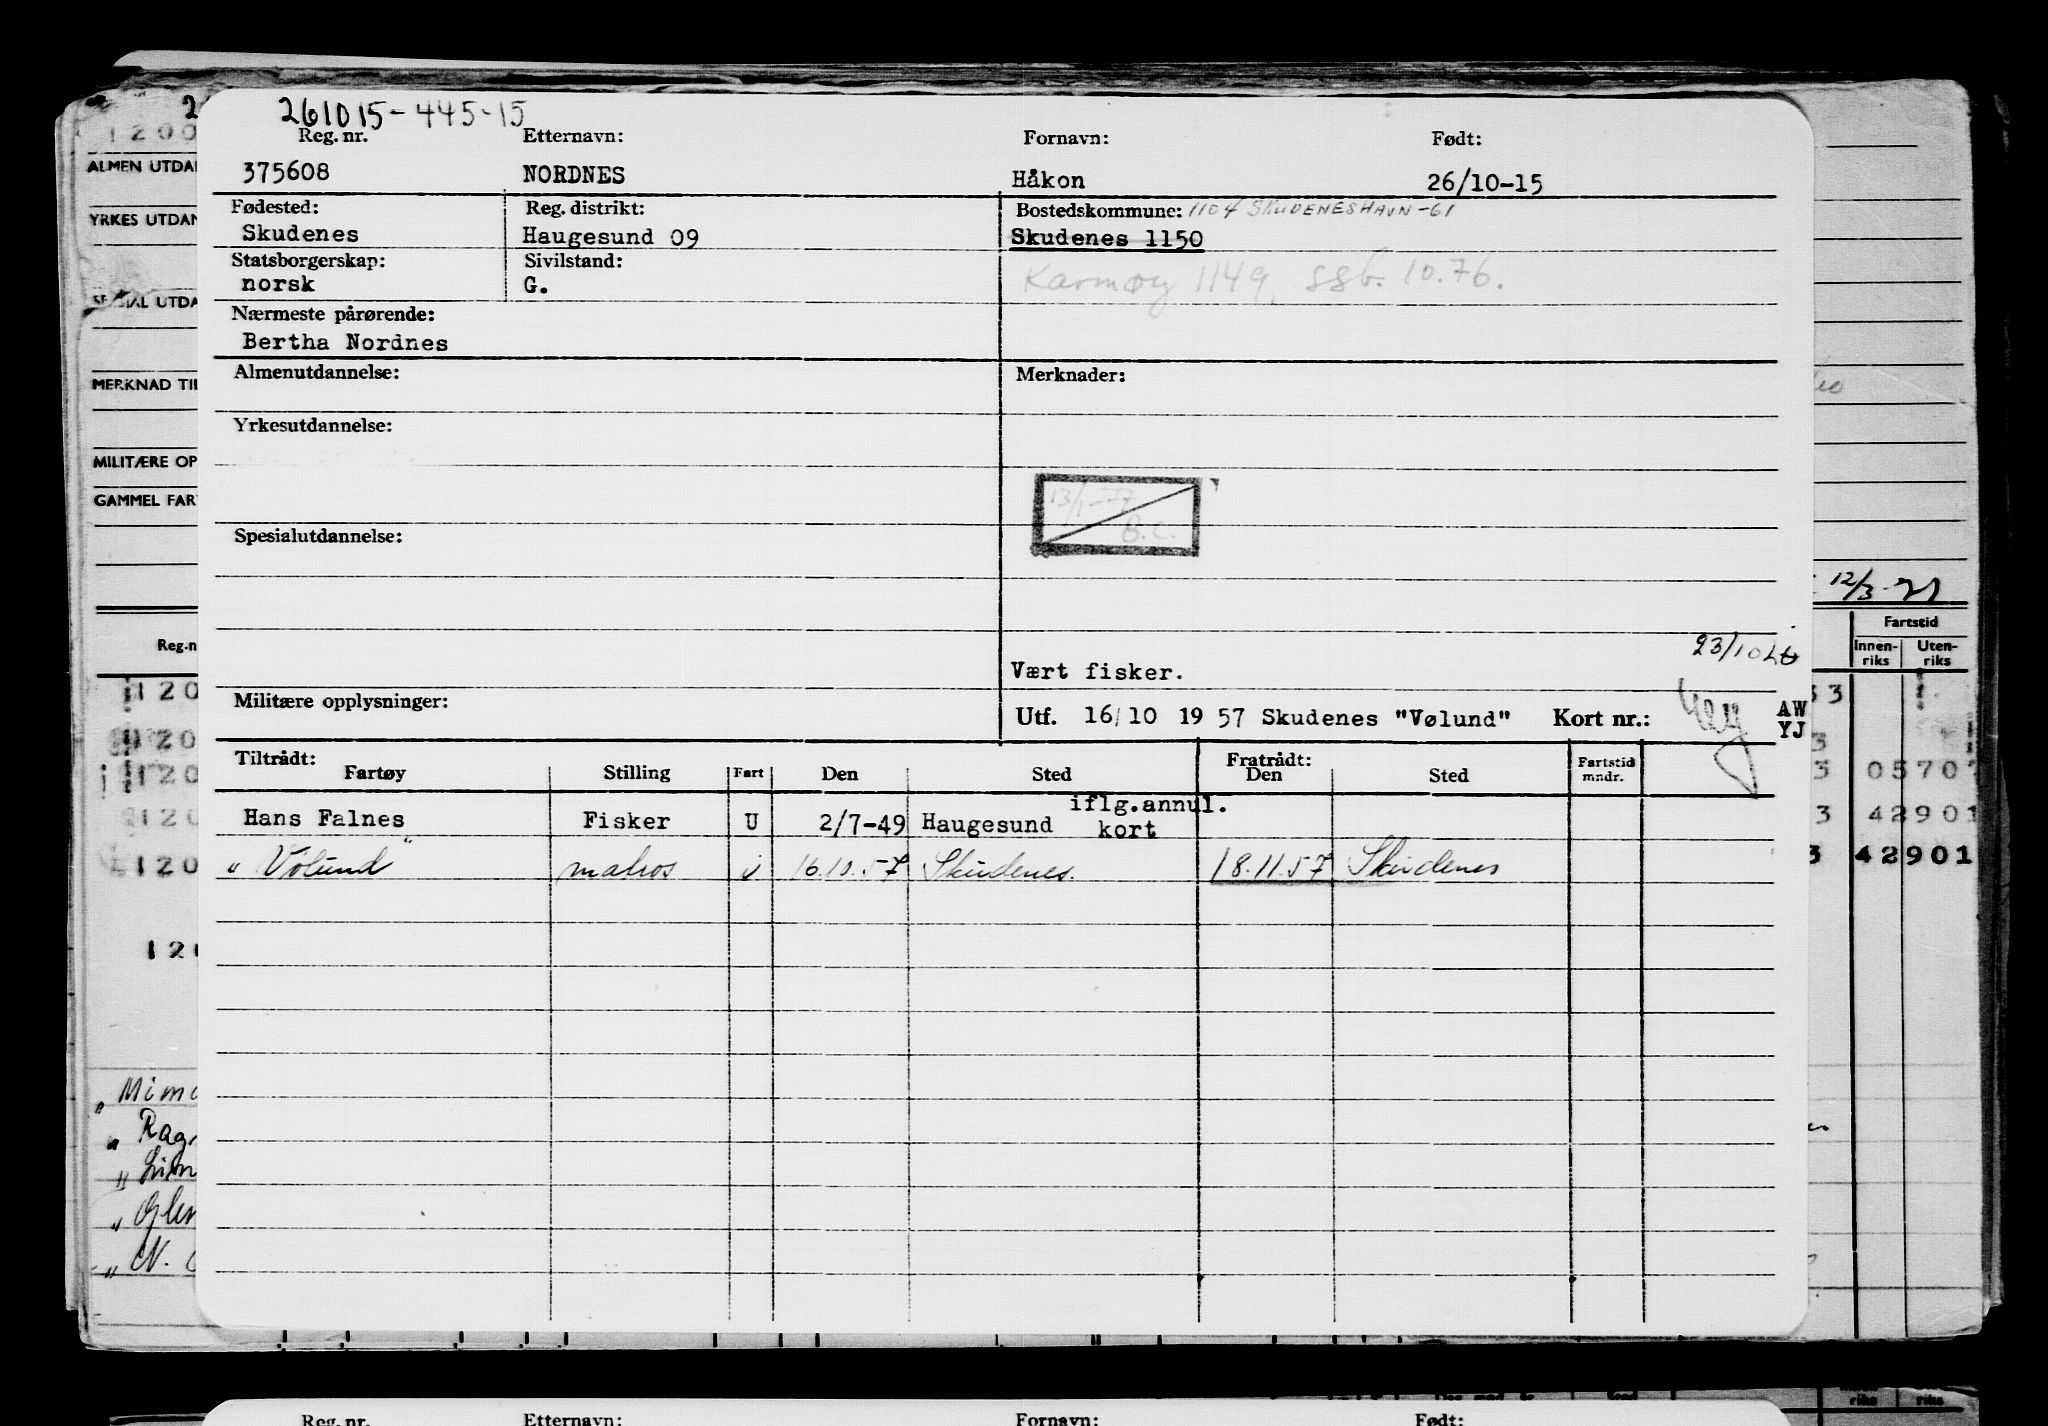 261015-445-15
Reg. nr. Etternavn: Fornavn: Født:
375608 NORDNES Håkon 26/10-15
Fødested: Reg. distrikt: Bostedskommune: 1104 SKUDENESHAVN-61
Skudenes Haugesund 09 Skudenes 1150
Statsborgerskap: Sivilstand:
norsk G. Karmøy 1149, ssb. 10.76.
Nærmeste pårørende:
Bertha Nordnes
Almenutdannelse: Merknader:
Yrkesutdannelse:
13/1-77
B.C.
Spesialutdannelse:
23/10
Vært fisker.
Militære opplysninger: Utf. 16/10 1957 Skudenes "Vølund" Kort nr.: AW
YJ
Tiltrådt: Fratrådt:
Fartøy Stilling Fart Den Sted Den Sted Fartstid mndr.
Hans Falnes Fisker U 2/7-49 Haugesund iflg.annul. kort
"Vølund" matros i 16.10.57 Skudenes. 18.11.57 Skudenes
1200
ALMEN UTDA
YRKES UTDAN
SPESIAL UTDA
MERKNAD TIL
MILITÆRE OP
GAMMEL FAR
12/3-71
Fartstid
Reg.n Innen-riks Uten-riks
120 33
120 3
120 3 0570
120 3 42901
120 3 42901
120
" Mim
" Rag
" Lin
" Glen
" N.
Reg. nr. Etternavn: Fornavn: Født: